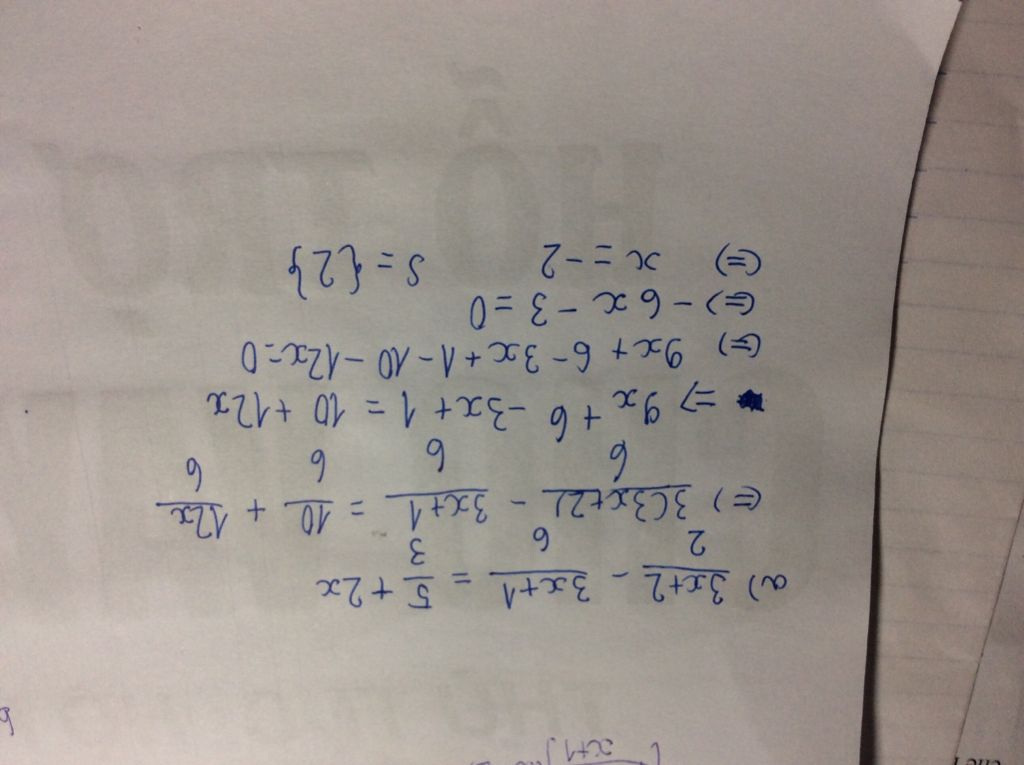 a) \frac{3x+2}{2} - \frac{3x+1}{6} = \frac{5}{3} + 2x
(=) \frac{3(3x+2)}{6} - \frac{3x+1}{6} = \frac{10}{6} + \frac{12x}{6}
=> 9x + 6 - 3x + 1 = 10 + 12x
(=) 9x + 6 - 3x + 1 - 10 - 12x = 0
(=) - 6x - 3 = 0
(=) x = -2 S = {2}
HỖ TRỢ